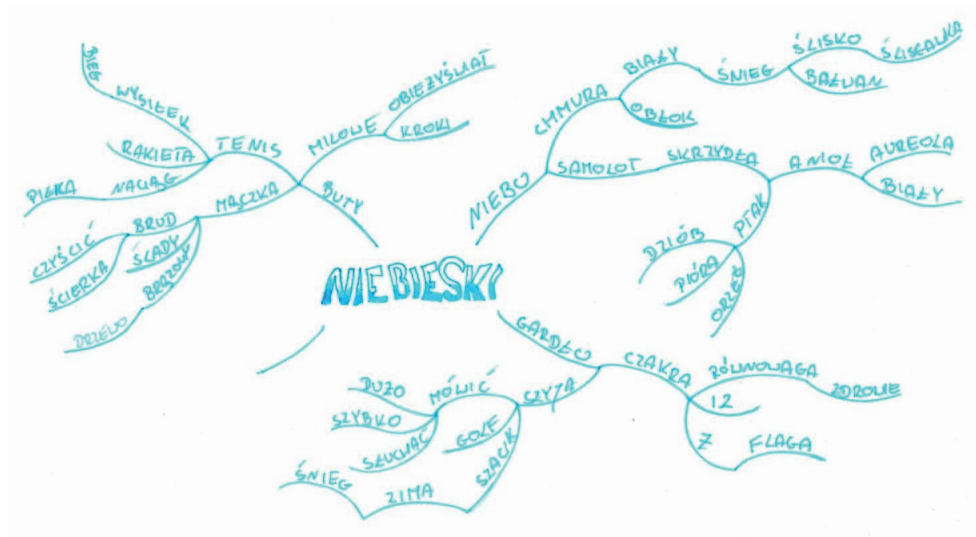 NIEBIESKI
BUTY
MILOWE
OBIEŻYŚWIAT
KROKI
TENIS
WYSIŁEK
BIEG
RAKIETA
NACIĄG
PIŁKA
MĄCZKA
BRUD
CZYŚCIĆ
ŚCIERKA
ŚLADY
BRĄZOWY
DRZEWO
NIEBO
CHMURA
BIAŁY
ŚNIEG
ŚLISKO
ŚLISGAWKA
BAŁWAN
OBŁOK
SAMOLOT
SKRZYDŁA
ANIOŁ
AUREOLA
BIAŁY
PTAK
DZIÓB
PIÓRA
ORZEŁ
GARDŁO
CZAKRA
RÓWNOWAGA
ZDROWIE
12
7
FLAGA
MÓWIĆ
DUŻO
SZYBKO
SŁUCHAĆ
GOLF
SZALIK
ZIMA
ŚNIEG